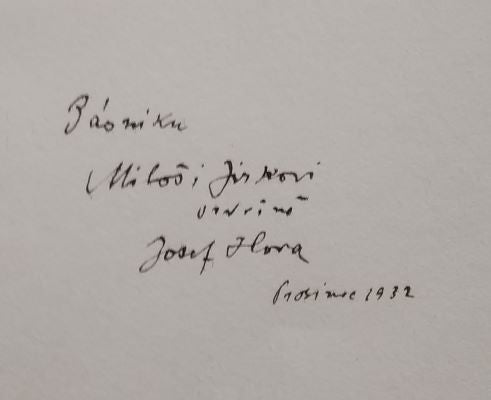 Básníku
Miloši Jirkovi
srdečně
Josef Hora
Prosinec 1932